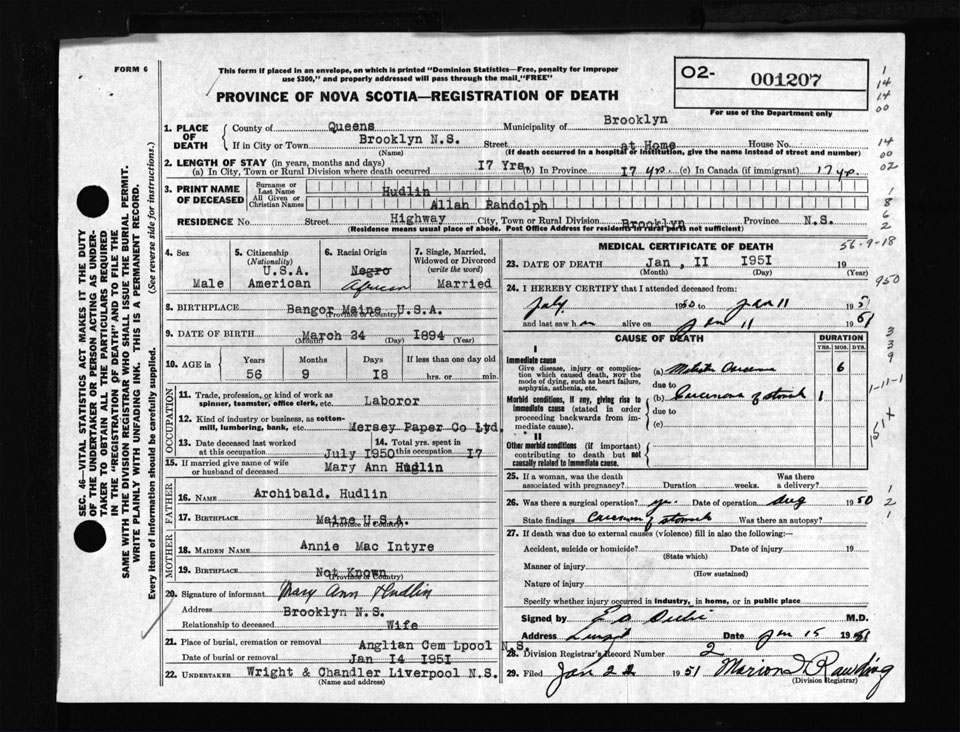 FORM 6
This form if placed in an envelope, on which is printed "Dominion Statistics—Free, penalty for improper
use $300," and properly addressed will pass through the mail "FREE"
PROVINCE OF NOVA SCOTIA—REGISTRATION OF DEATH
O2- 001207
For use of the Department only
1. PLACE OF DEATH
County of Queens Municipality of Brooklyn
If in City or Town Brooklyn N.S. Street at Home House No.
(Name) (If death occurred in a hospital or institution, give the name instead of street and number)
2. LENGTH OF STAY (in years, months and days)
(a) In City, Town or Rural Division where death occurred I7 Yrs. (b) In Province 17 yrs (c) In Canada (if immigrant) 17 yr.
3. PRINT NAME OF DECEASED
Surname or Last Name Hudlin
All Given or Christian Names Allan Randolph
RESIDENCE No. Street Highway City, Town or Rural Division Brooklyn Province N.S.
(Residence means usual place of abode. Post Office Address for residents in rural parts not sufficient)
4. Sex
Male
5. Citizenship
(Nationality)
U.S.A.
American
6. Racial Origin
Negro
African
7. Single, Married,
Widowed or Divorced
(write the word)
Married
8. BIRTHPLACE Bangor Maine U.S.A.
(Province or Country)
9. DATE OF BIRTH March 34 I894
(Month) (Day) (Year)
10. AGE in Years Months Days If less than one day old
56 9 I8 hrs. or min.
OCCUPATION
11. Trade, profession, or kind of work as
spinner, teamster, office clerk, etc. Laboror
12. Kind of industry or business, as cotton-
mill, lumbering, bank, etc. Mersey Paper Co Ltd.
13. Date deceased last worked
at this occupation July I950
14. Total yrs. spent in
this occupation I7
15. If married give name of wife
or husband of deceased Mary Ann Hudlin
FATHER
16. NAME Archibald. Hudlin
17. BIRTHPLACE Maine U.S.A.
(Province or Country)
MOTHER
18. MAIDEN NAME Annie Mac Intyre
19. BIRTHPLACE Not Known
(Province or Country)
20. Signature of informant Mary Ann Hudlin
Address Brooklyn N.S.
Relationship to deceased Wife
21. Place of burial, cremation or removal Anglian Cem Lpool N.S.
Date of burial or removal Jan I4 I95I
22. UNDERTAKER Wright & Chandler Liverpool N.S.
(Name and address)
MEDICAL CERTIFICATE OF DEATH
23. DATE OF DEATH Jan, II I95I 19
(Month) (Day) (Year)
24. I HEREBY CERTIFY that I attended deceased from:
July 1950 to Jan 11 1951
and last saw h im alive on Jan 11 1951
CAUSE OF DEATH DURATION
YRS. MOS. DYS.
I
Immediate cause
Give disease, injury or complica-
tion which caused death, NOT the
mode of dying, such as heart failure,
asphyxia, asthenia, etc.
(a) 6
due to
Morbid conditions, if any, giving rise to
immediate cause (stated in order
of proceeding backwards from im-
mediate cause).
(b) Carcinoma of stomach 1
due to
(c)
II
Other morbid conditions (if important)
contributing to death but not
causally related to immediate cause.
25. If a woman, was the death
associated with pregnancy? Duration weeks. Was there
a delivery?
26. Was there a surgical operation? yes. Date of operation Aug 1950
State findings Carcinoma of stomach Was there an autopsy?
27. If death was due to external causes (violence) fill in also the following:—
Accident, suicide or homicide? Date of injury 19
(State which)
Manner of injury
(How sustained)
Nature of injury
Specify whether injury occurred in industry, in home, or in public place
Signed by M.D.
Address Date Jan 15 1951
28. Division Registrar's Record Number 2
29. Filed Jan 22 1951 Marion
(Division Registrar)
SEC. 46—VITAL STATISTICS ACT MAKES IT THE DUTY
OF THE UNDERTAKER OR PERSON ACTING AS UNDER-
TAKER TO OBTAIN ALL THE PARTICULARS REQUIRED
IN THE "REGISTRATION OF DEATH" AND TO FILE THE
SAME WITH THE DIVISION REGISTRAR WHO SHALL ISSUE THE BURIAL PERMIT.
WRITE PLAINLY WITH UNFADING INK. THIS IS A PERMANENT RECORD.
Every item of information should be carefully supplied. (See reverse side for instructions.)
1
14
14
00
14
00
02
1
8
6
2
56-9-18
950
3
3
9
1-11-1
1
2
1